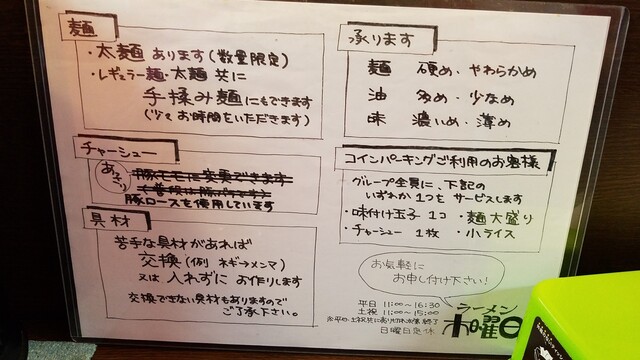 麺
・太麺あります(数量限定)
・レギュラー麺・太麺 共に
手揉み麺にもできます
(少々お時間をいただきます)
チャーシュー
あっさり
豚モモに変更できます
豚ロースを使用しています
具材
苦手な具材があれば
交換(例 ネギ→メンマ)
又は 入れずに お作りします
交換できない具材もありますので
ご了承下さい。
承ります
麺 硬め・やわらかめ
油 多め・少なめ
味 濃いめ・薄め
コインパーキングご利用のお客様
グループ全員に、下記の
いずれか1つを サービスします
・味付け玉子 1コ ・麺大盛り
・チャーシュー 1枚 ・小ライス
お気軽に
お申し付け下さい!
平日 11:00~16:30
土祝 11:00~15:00
※平日・土祝共に売り切れ次第 終了
日曜日定休
ラーメン
木曜日